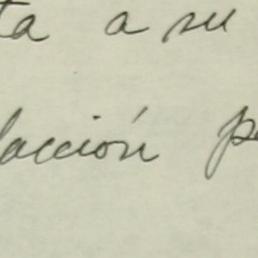 ta a su
facción p